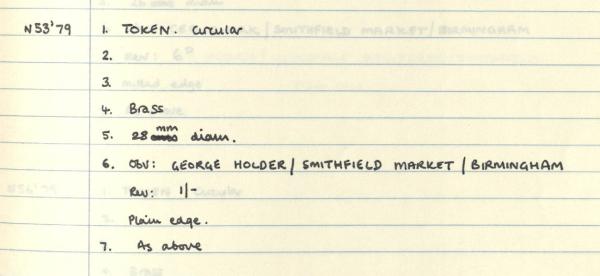 N53'79 1. TOKEN. Circular
2.
3.
4. Brass
5. 28 mm diam.
6. Obv: GEORGE HOLDER / SMITHFIELD MARKET / BIRMINGHAM
Rev: 1/-
Plain edge.
7. As above